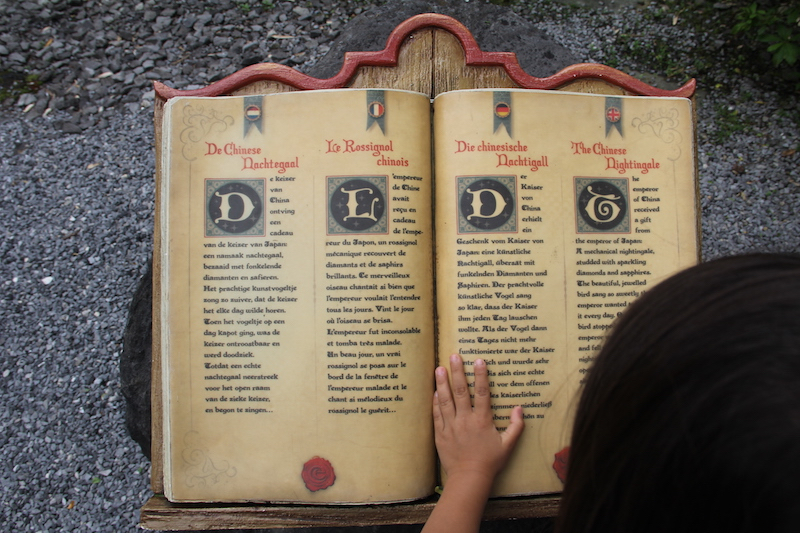 De Chinese
Nachtegaal
De keizer
van
China
ontving
een
cadeau
van de keizer van Japan:
een namaak nachtegaal,
bezaaid met fonkelende
diamanten en safieren.
Het prachtige kunstvogeltje
zong zo zuiver, dat de keizer
het elke dag wilde horen.
Toen het vogeltje op een
dag kapot ging, was de
keizer ontroostbaar en
werd doodziek.
Totdat een echte
nachtegaal neerstreek
voor het open raam
van de zieke keizer,
en begon te zingen...
Le Rossignol
chinois
L'empereur
de Chine
avait
reçu en
cadeau
de l'empe-
reur du Japon, un rossignol
mécanique recouvert de
diamants et de saphirs
brillants. Ce merveilleux
oiseau chantait si bien que
l'empereur voulait l'entendre
tous les jours. Vint le jour
où l'oiseau se brisa.
L'empereur fut inconsolable
et tomba très malade.
Un beau jour, un vrai
rossignol se posa sur le
bord de la fenêtre de
l'empereur malade et le
chant si mélodieux du
rossignol le guérit...
Die chinesische
Nachtigall
Der
Kaiser
von
China
erhielt
ein
Geschenk vom Kaiser von
Japan: eine künstliche
Nachtigall, übersät mit
funkelnden Diamanten und
Saphiren. Der prachtvolle
künstliche Vogel sang
so klar, dass der Kaiser
ihm jeden Tag lauschen
wollte. Als der Vogel dann
eines Tages nicht mehr
funktionierte war der Kaiser
und wurde sehr
sich eine echte
vor dem offenen
kaiserlichen
niederließ
zu
The Chinese
Nightingale
The
emperor
of China
received
a gift
from
the emperor of Japan:
A mechanical nightingale,
studded with sparkling
diamonds and sapphires.
The beautiful, jewelled
bird sang so sweetly
emperor wanted
it every day.
bird stopped
emperor
and fell